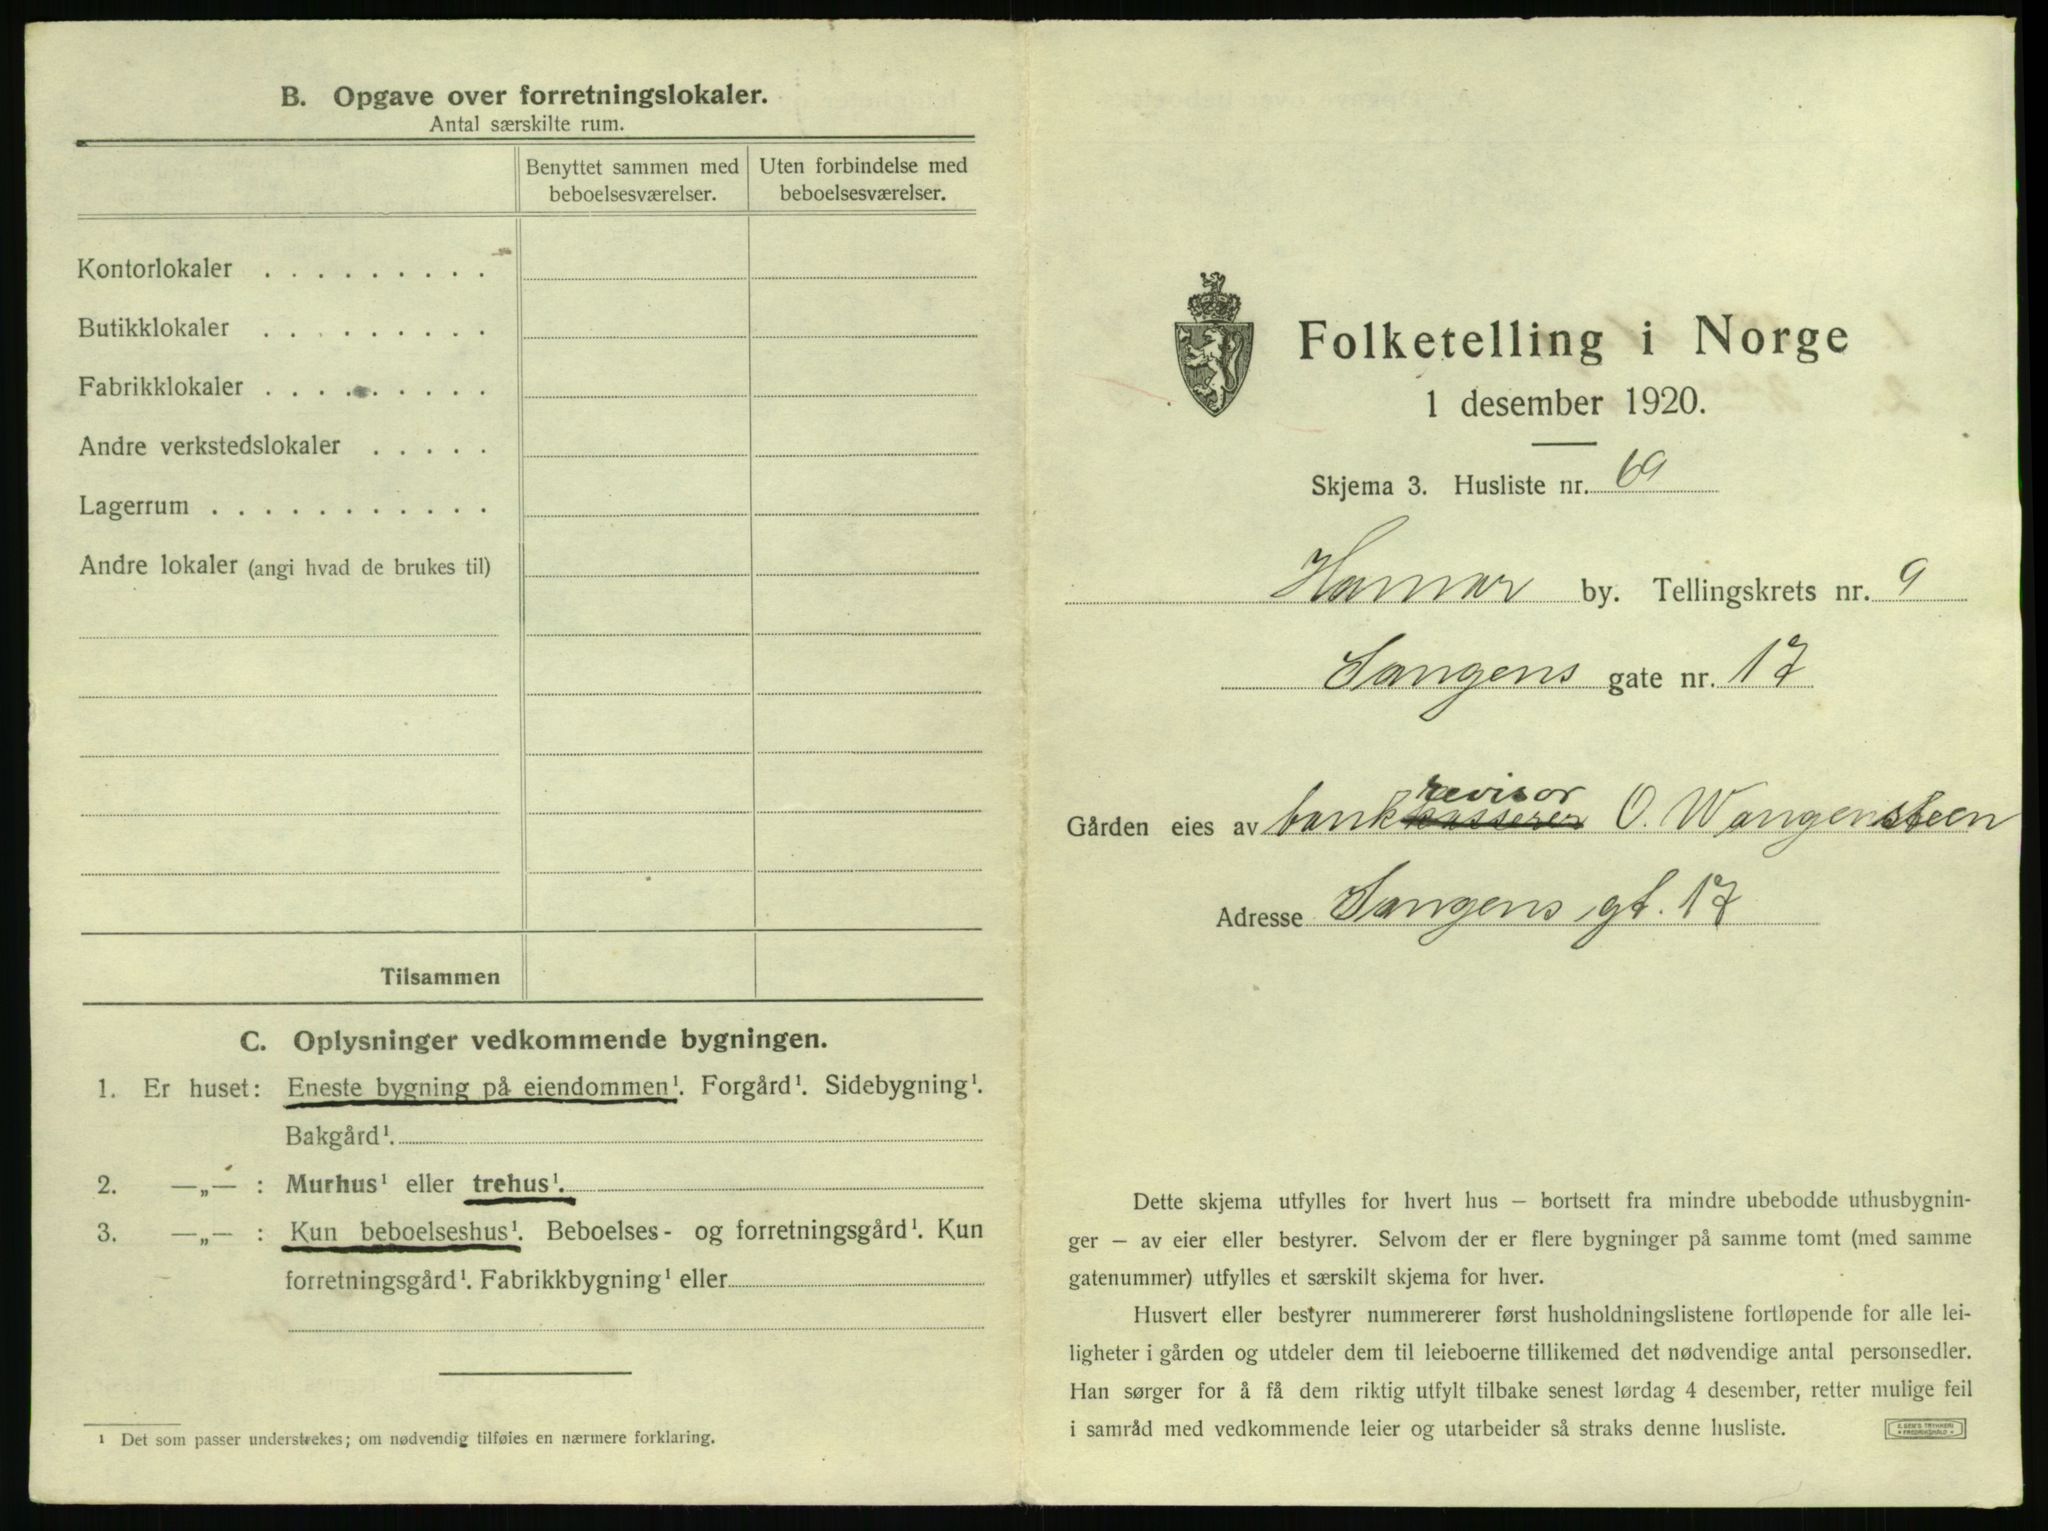 B. Opgave over forretningslokaler.
Antal særskilte rum.
Benyttet sammen med beboelsesværelser.
Uten forbindelse med beboelsesværelser.
Kontorlokaler . . . . . . . . .
Butikklokaler . . . . . . . . .
Fabrikklokaler . . . . . . . . .
Andre verkstedslokaler . . . . .
Lagerrum . . . . . . . . . . . .
Andre lokaler (angi hvad de brukes til)
Tilsammen
C. Oplysninger vedkommende bygningen.
1. Er huset: Eneste bygning på eiendommen¹. Forgård¹. Sidebygning¹.
Bakgård¹.
2. —„— : Murhus¹ eller trehus¹.
3. —„— : Kun beboelseshus¹. Beboelses- og forretningsgård¹. Kun
forretningsgård¹. Fabrikkbygning¹ eller
¹ Det som passer understrekes; om nødvendig tilføies en nærmere forklaring.
Folketelling i Norge
1 desember 1920.
Skjema 3. Husliste nr. 69
Hamar by. Tellingskrets nr. 9
Vangens gate nr. 17
revisor
Gården eies av bankkasserer O. Wangensteen
Adresse Vangens gt. 17
Dette skjema utfylles for hvert hus — bortsett fra mindre ubebodde uthusbygnin-
ger — av eier eller bestyrer. Selvom der er flere bygninger på samme tomt (med samme
gatenummer) utfylles et særskilt skjema for hver.
Husvert eller bestyrer nummererer først husholdningslistene fortløpende for alle lei-
ligheter i gården og utdeler dem til leieboerne tillikemed det nødvendige antal personsedler.
Han sørger for å få dem riktig utfylt tilbake senest lørdag 4 desember, retter mulige feil
i samråd med vedkommende leier og utarbeider så straks denne husliste.